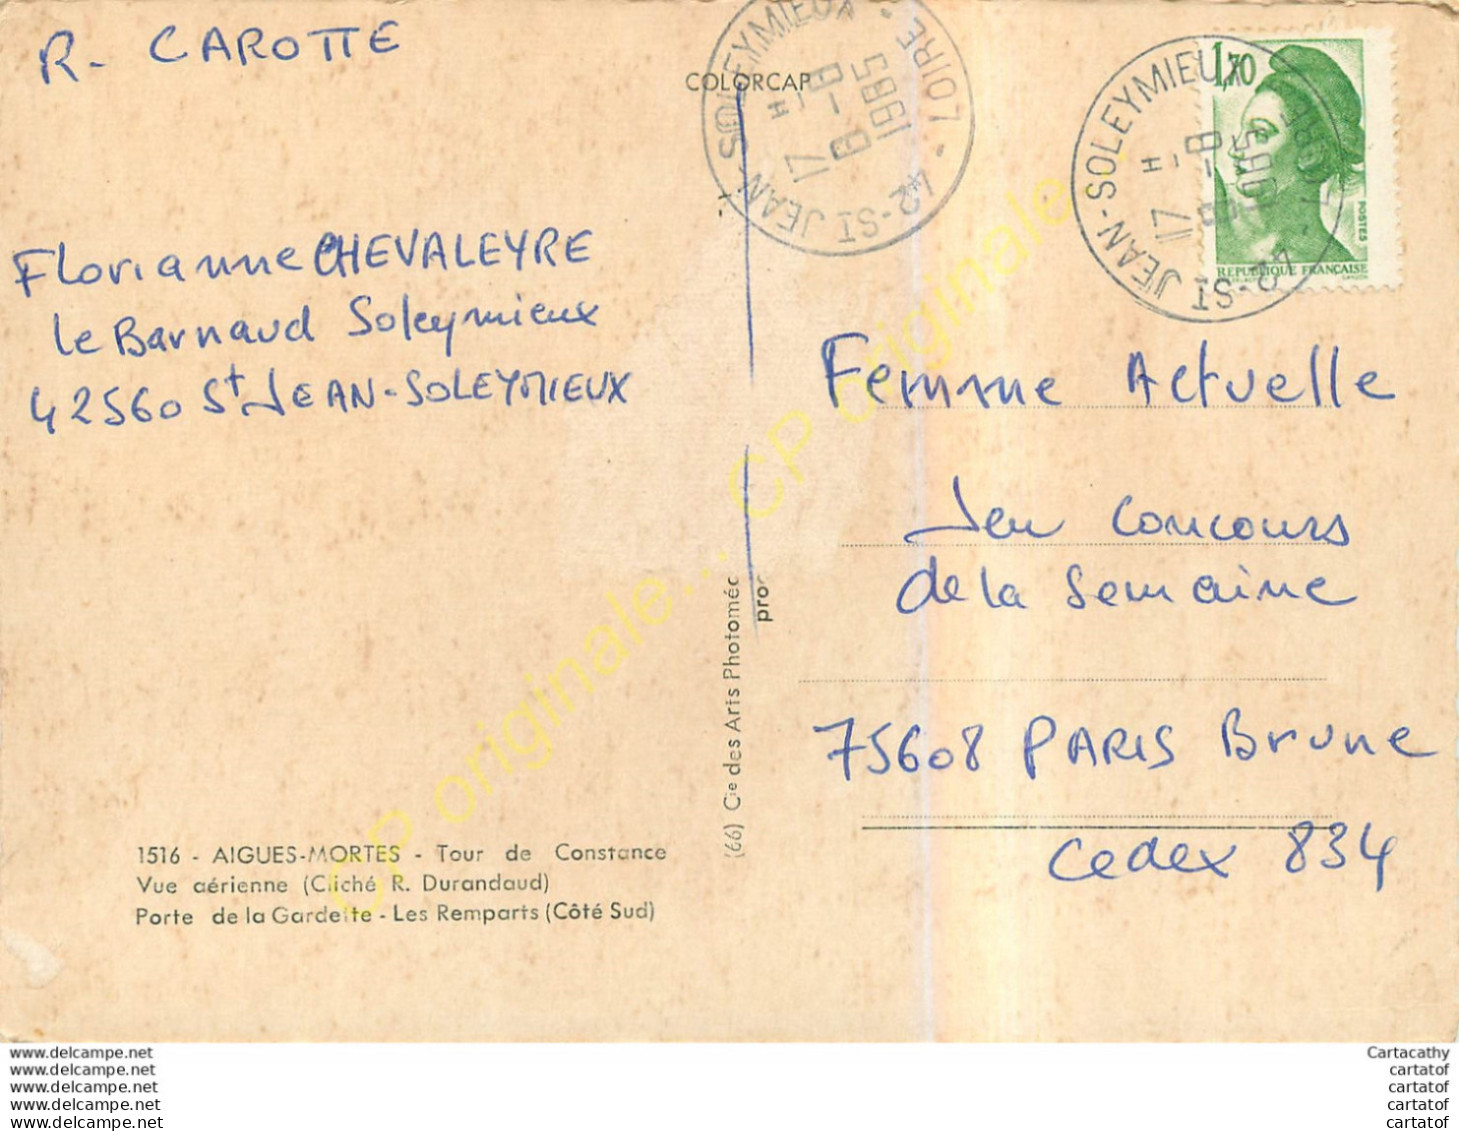 R- CAROTTE
COLORCAP
42-ST JEAN-SOLEYMIEUX · LOIRE ·
17 H
8-8
1985
42-ST JEAN-SOLEYMIEUX
LOIRE
17 H
8-8
1985
1,70
POSTES
REPUBLIQUE FRANÇAISE
Florianne CHEVALEYRE
le Barnaud Soleymieux
42560 St JEAN-SOLEYMIEUX
Femme Actuelle
Jeu concours
de la Semaine
75608 PARIS Brune
Cedex 834
(66) Cie des Arts Photoméc
proc
1516 - AIGUES-MORTES - Tour de Constance
Vue aérienne (Cliché R. Durandaud)
Porte de la Gardette - Les Remparts (Côté Sud)
CP originale... CP originale
www.delcampe.net
www.delcampe.net
www.delcampe.net
www.delcampe.net
www.delcampe.net
Cartacathy
cartatof
cartatof
cartatof
cartatof